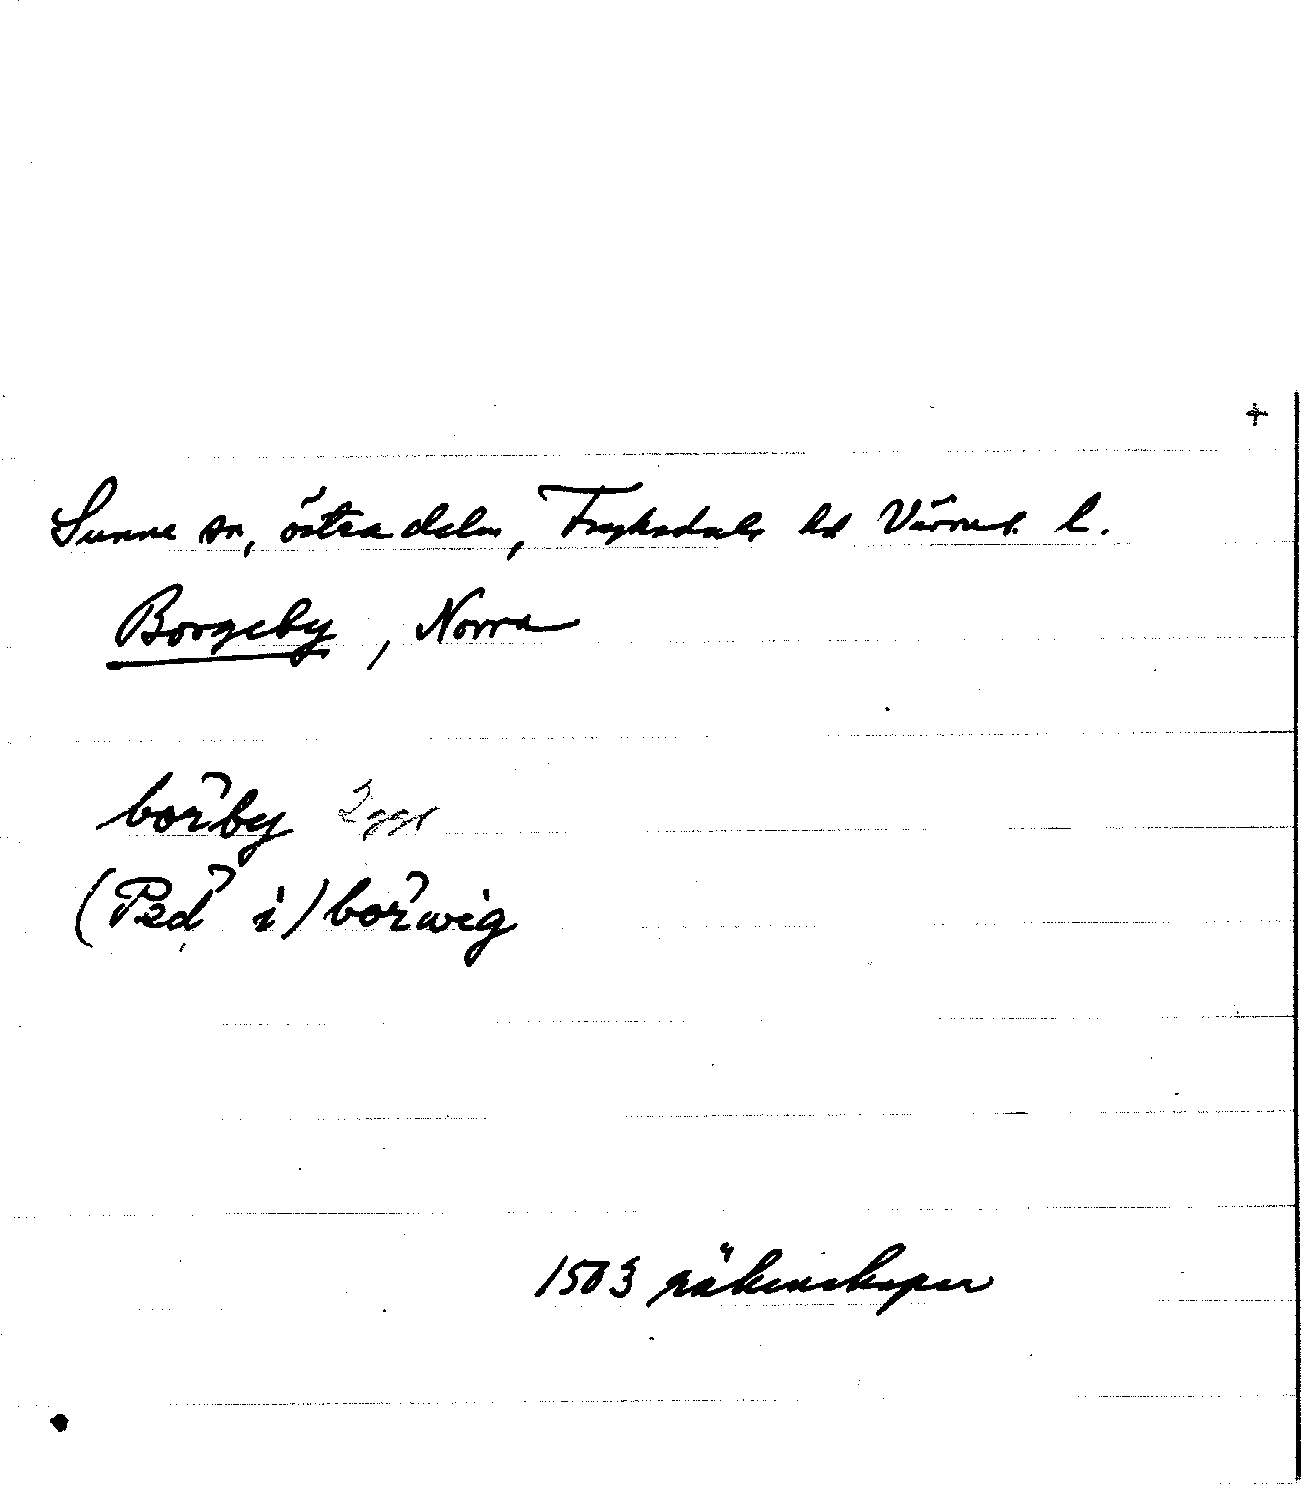 +
Sunne sn, östra delen, Fryksdals hd Värml. l.
Borgeby, Norra
bor̃by 2 ggr
(Ped̃ i) bor̃wig
1503 räkenskaper